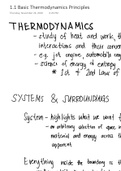 1.1 Basic Thermodynamics Principles
THERMODYNAMICS
- study of heat and work, th
interactions and their conver
- e.g. jet engine, automobile eng
- science of energy & entropy
* 1st & 2nd Law of
SYSTEMS & SURROUNDINGS
System - highlights what we want t
- an arbitrary selection of space in
material and energy across the
apparent
Everything inside the boundary is th